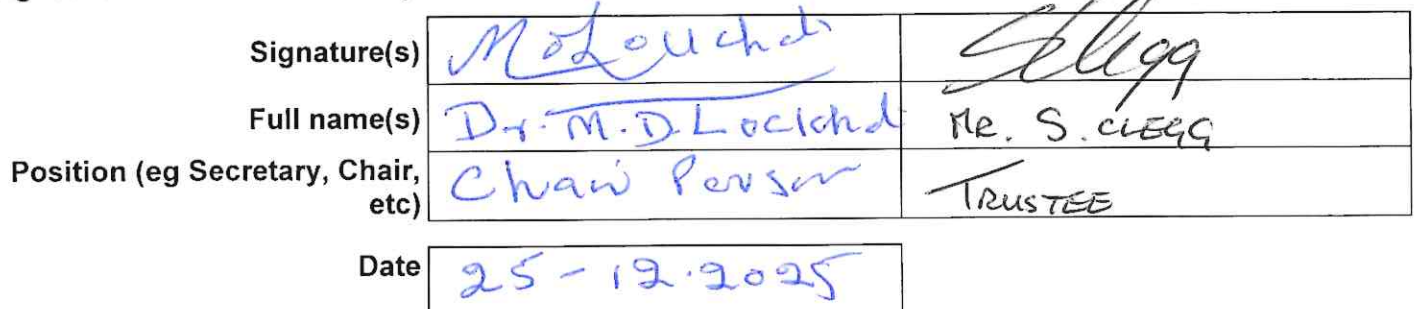 Signature(s) Clegg
Full name(s) Dr. M.D. MR. S. CLEGG
Position (eg Secretary, Chair, etc) Chair Person TRUSTEE
Date 25-12.2025